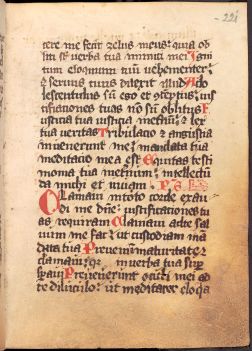 221
cere me fecit zelus meus: quia ob
liti st verba tua inimici mei Igni
tum eloquium tuū vehementer:
et servus tuus dilexit illud Ado
lescentulus sū ego et ɔteptus: ius
tificationes tuas nō sū oblitus
iusticia tua iusticia in et lex
tua veritas Tribulacio et angustia
invenerunt me: mandata tua
meditacio mea est Equitas testi
monia tua in intellectū
da michi et vivam.
Clamavi in toto corde exau
di me dn̄e: iustificationes tu
as requiram Clamavi ad te sal
vum me fac: ut custodiam man
data tua Preveni in maturitate et
clamavi: in verba tua sup
spavi Prevenerunt oculi mei ad
te diluculo: ut meditarer eloqa